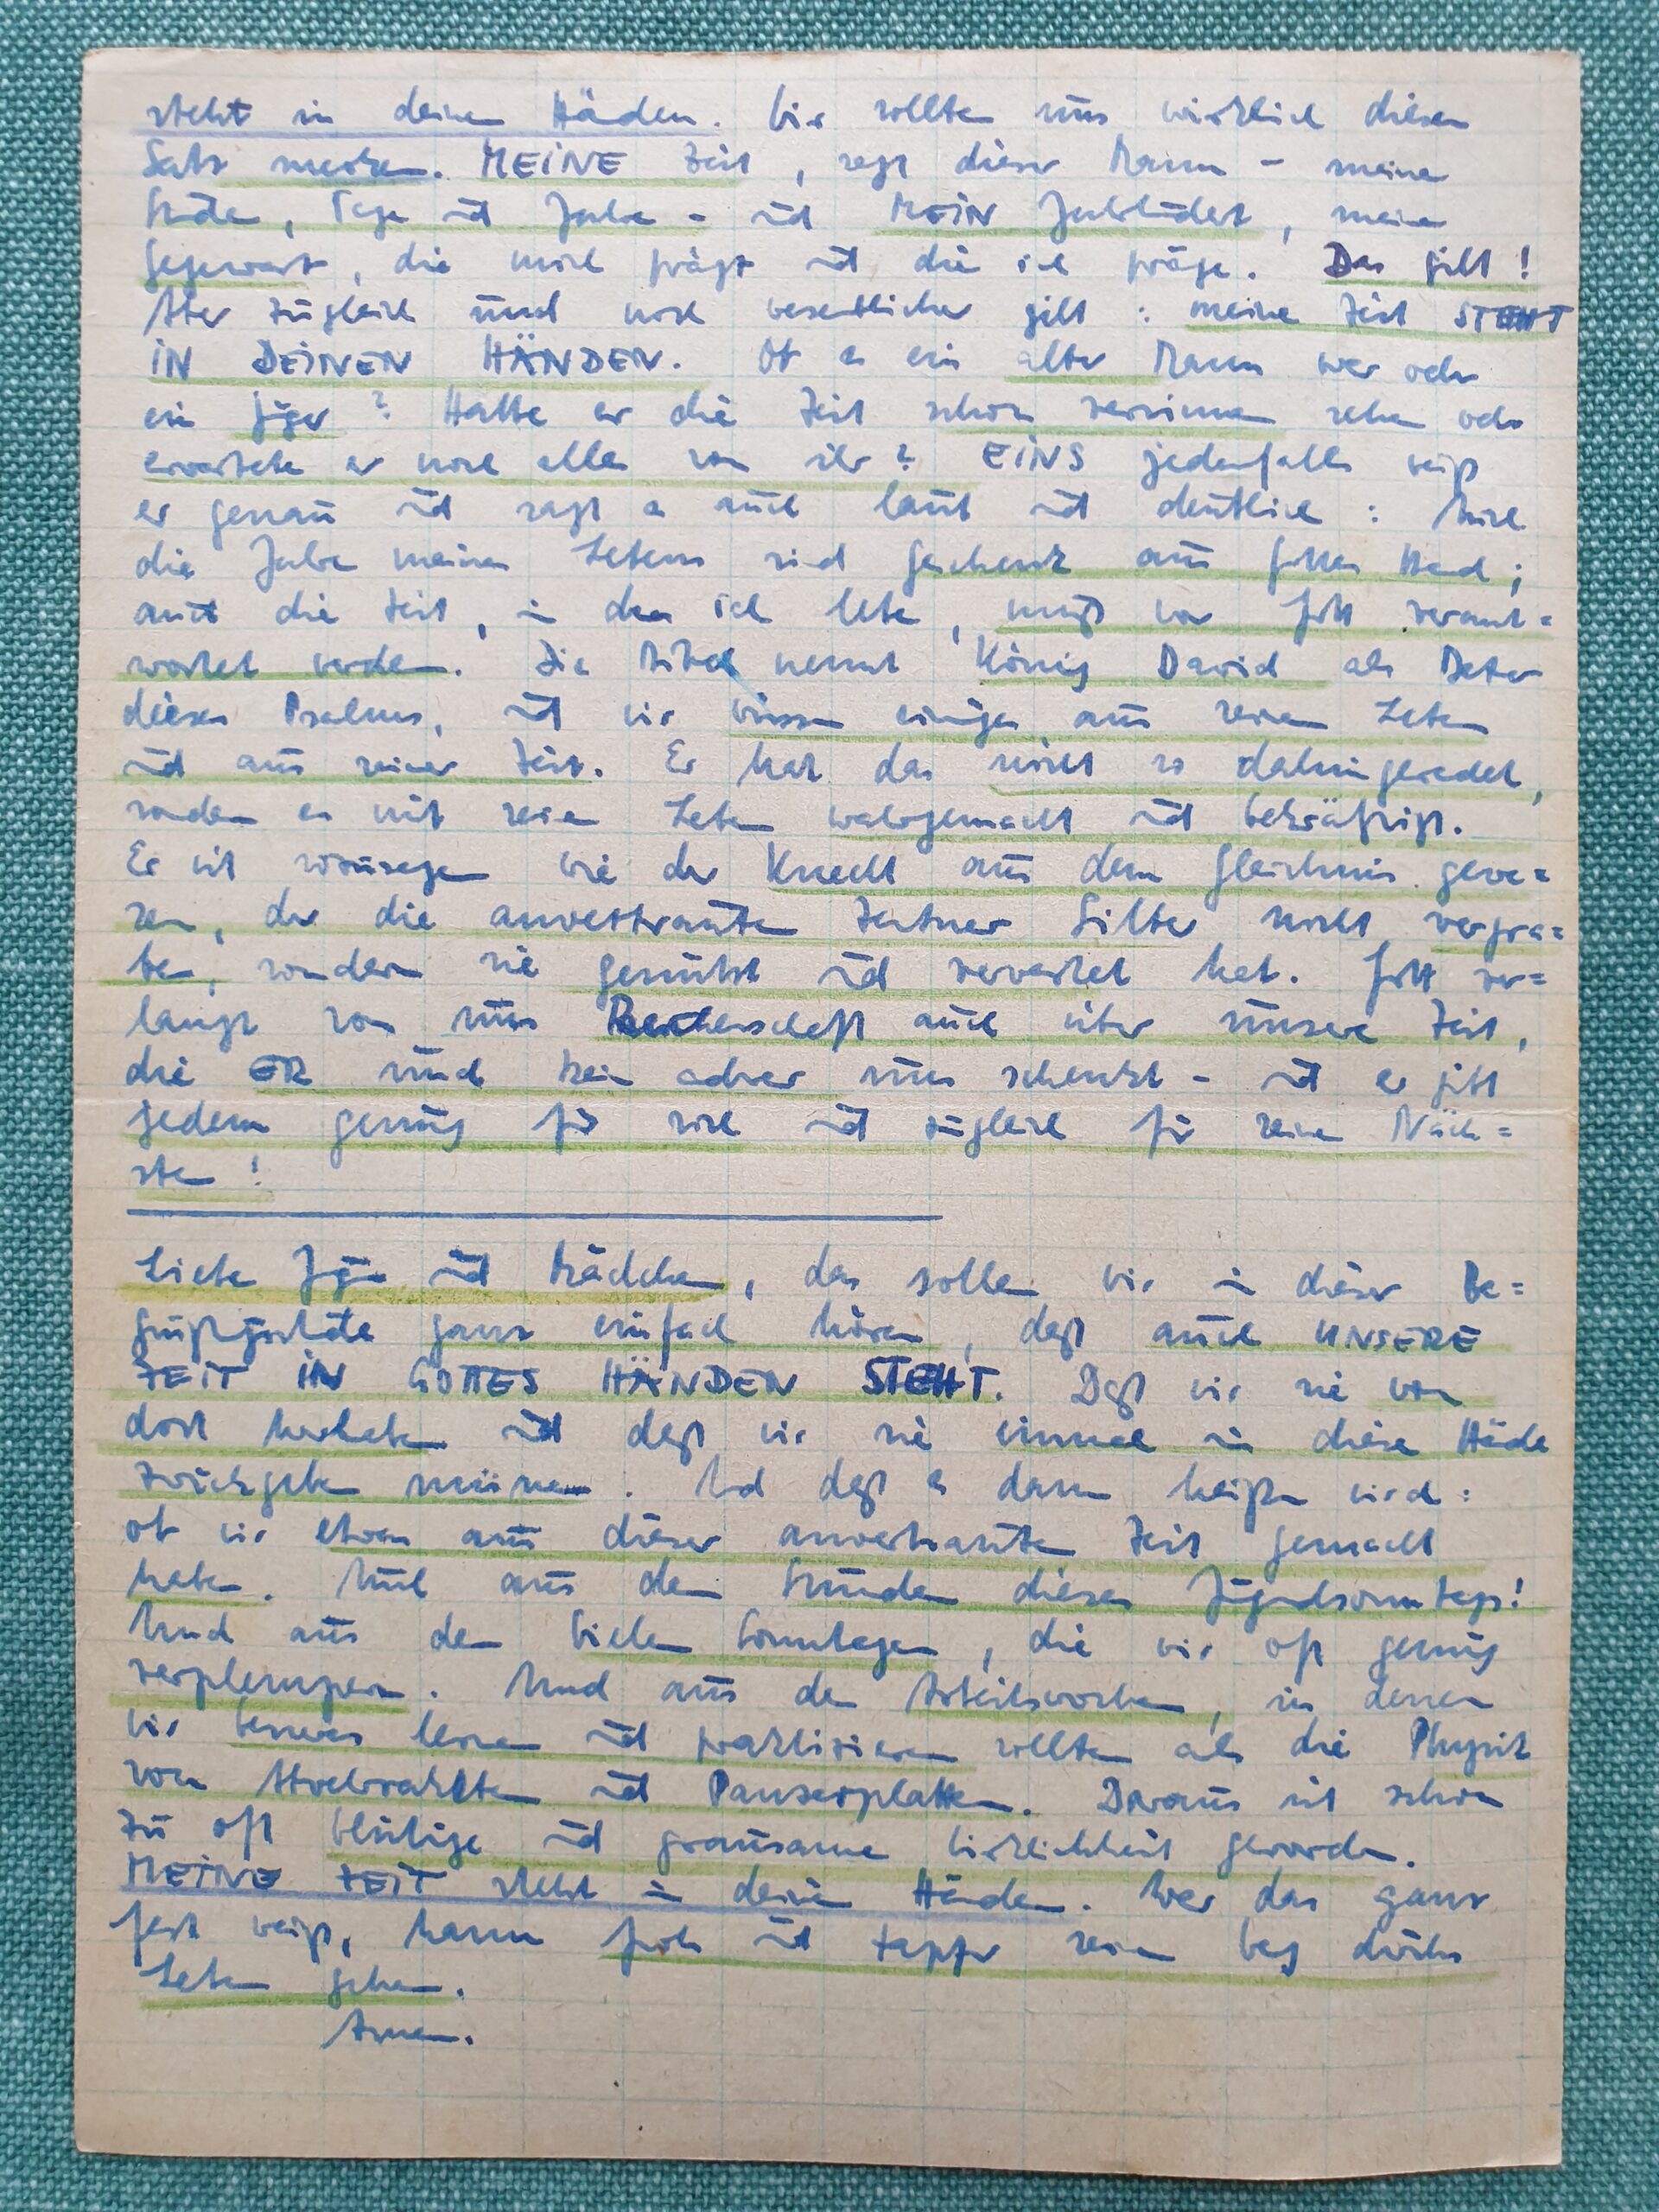 steht in deinen Händen. Wir sollten uns wirklich diesen
Satz merken. MEINE Zeit, sagt dieser Mann - meine
Stunden, Tage und Jahre - und MEIN Jahrhundert, meine
Gegenwart, die mich prägt und die ich präge. Das gilt!
Aber zugleich und noch wesentlicher gilt: meine Zeit STEHT
IN DEINEN HÄNDEN. Ob es ein alter Mann war oder
ein junger? Hatte er die Zeit schon verrinnen sehen oder
erwartete er noch alles von ihr? EINS jedenfalls weiß
er genau und sagt es auch laut und deutlich: Auch
die Jahre meines Lebens sind Geschenk aus Gottes Hand;
auch die Zeit, in der ich lebe, muß vor Gott verant=
wortet werden. Die Bibel nennt König David als Beter
dieses Psalms, und wir wissen einiges aus seinem Leben
und aus seiner Zeit. Er hat das nicht so dahingeredet,
sondern es mit seinem Leben wahrgemacht und bekräftigt.
Er ist sozusagen wie der Knecht aus dem Gleichnis gewe=
sen, der die anvertrauten Zentner Silber nicht vergra=
ben, sondern sie genützt und verwertet hat. Gott ver=
langt von uns Rechenschaft auch über unsere Zeit,
die ER und kein andrer uns schenkt - und er gibt
jedem genug für sich und zugleich für seine Näch=
sten!
Liebe Jungen und Mädchen, das sollen wir in dieser Be=
grüßungsstunde ganz einfach hören, daß auch UNSERE
ZEIT IN GOTTES HÄNDEN STEHT. Daß wir sie von
dort herhaben und daß wir sie einmal in diese Hände
zurückgeben müssen. Und daß es dann heißen wird:
ob wir etwas aus dieser anvertrauten Zeit gemacht
haben. Auch aus den Stunden dieses Jugendsonntags!
Und aus den vielen Sonntagen, die wir oft genug
verplempern. Und aus den Arbeitswochen, in denen
wir besseres lernen und praktizieren sollten als die Physik
von Atomraketen und Panzerplatten. Daraus ist schon
zu oft blutige und grausame Wirklichkeit geworden.
MEINE ZEIT steht in deinen Händen. Wer das ganz
fest weiß, kann froh und tapfer seinen Weg durchs
Leben gehen.
Amen.